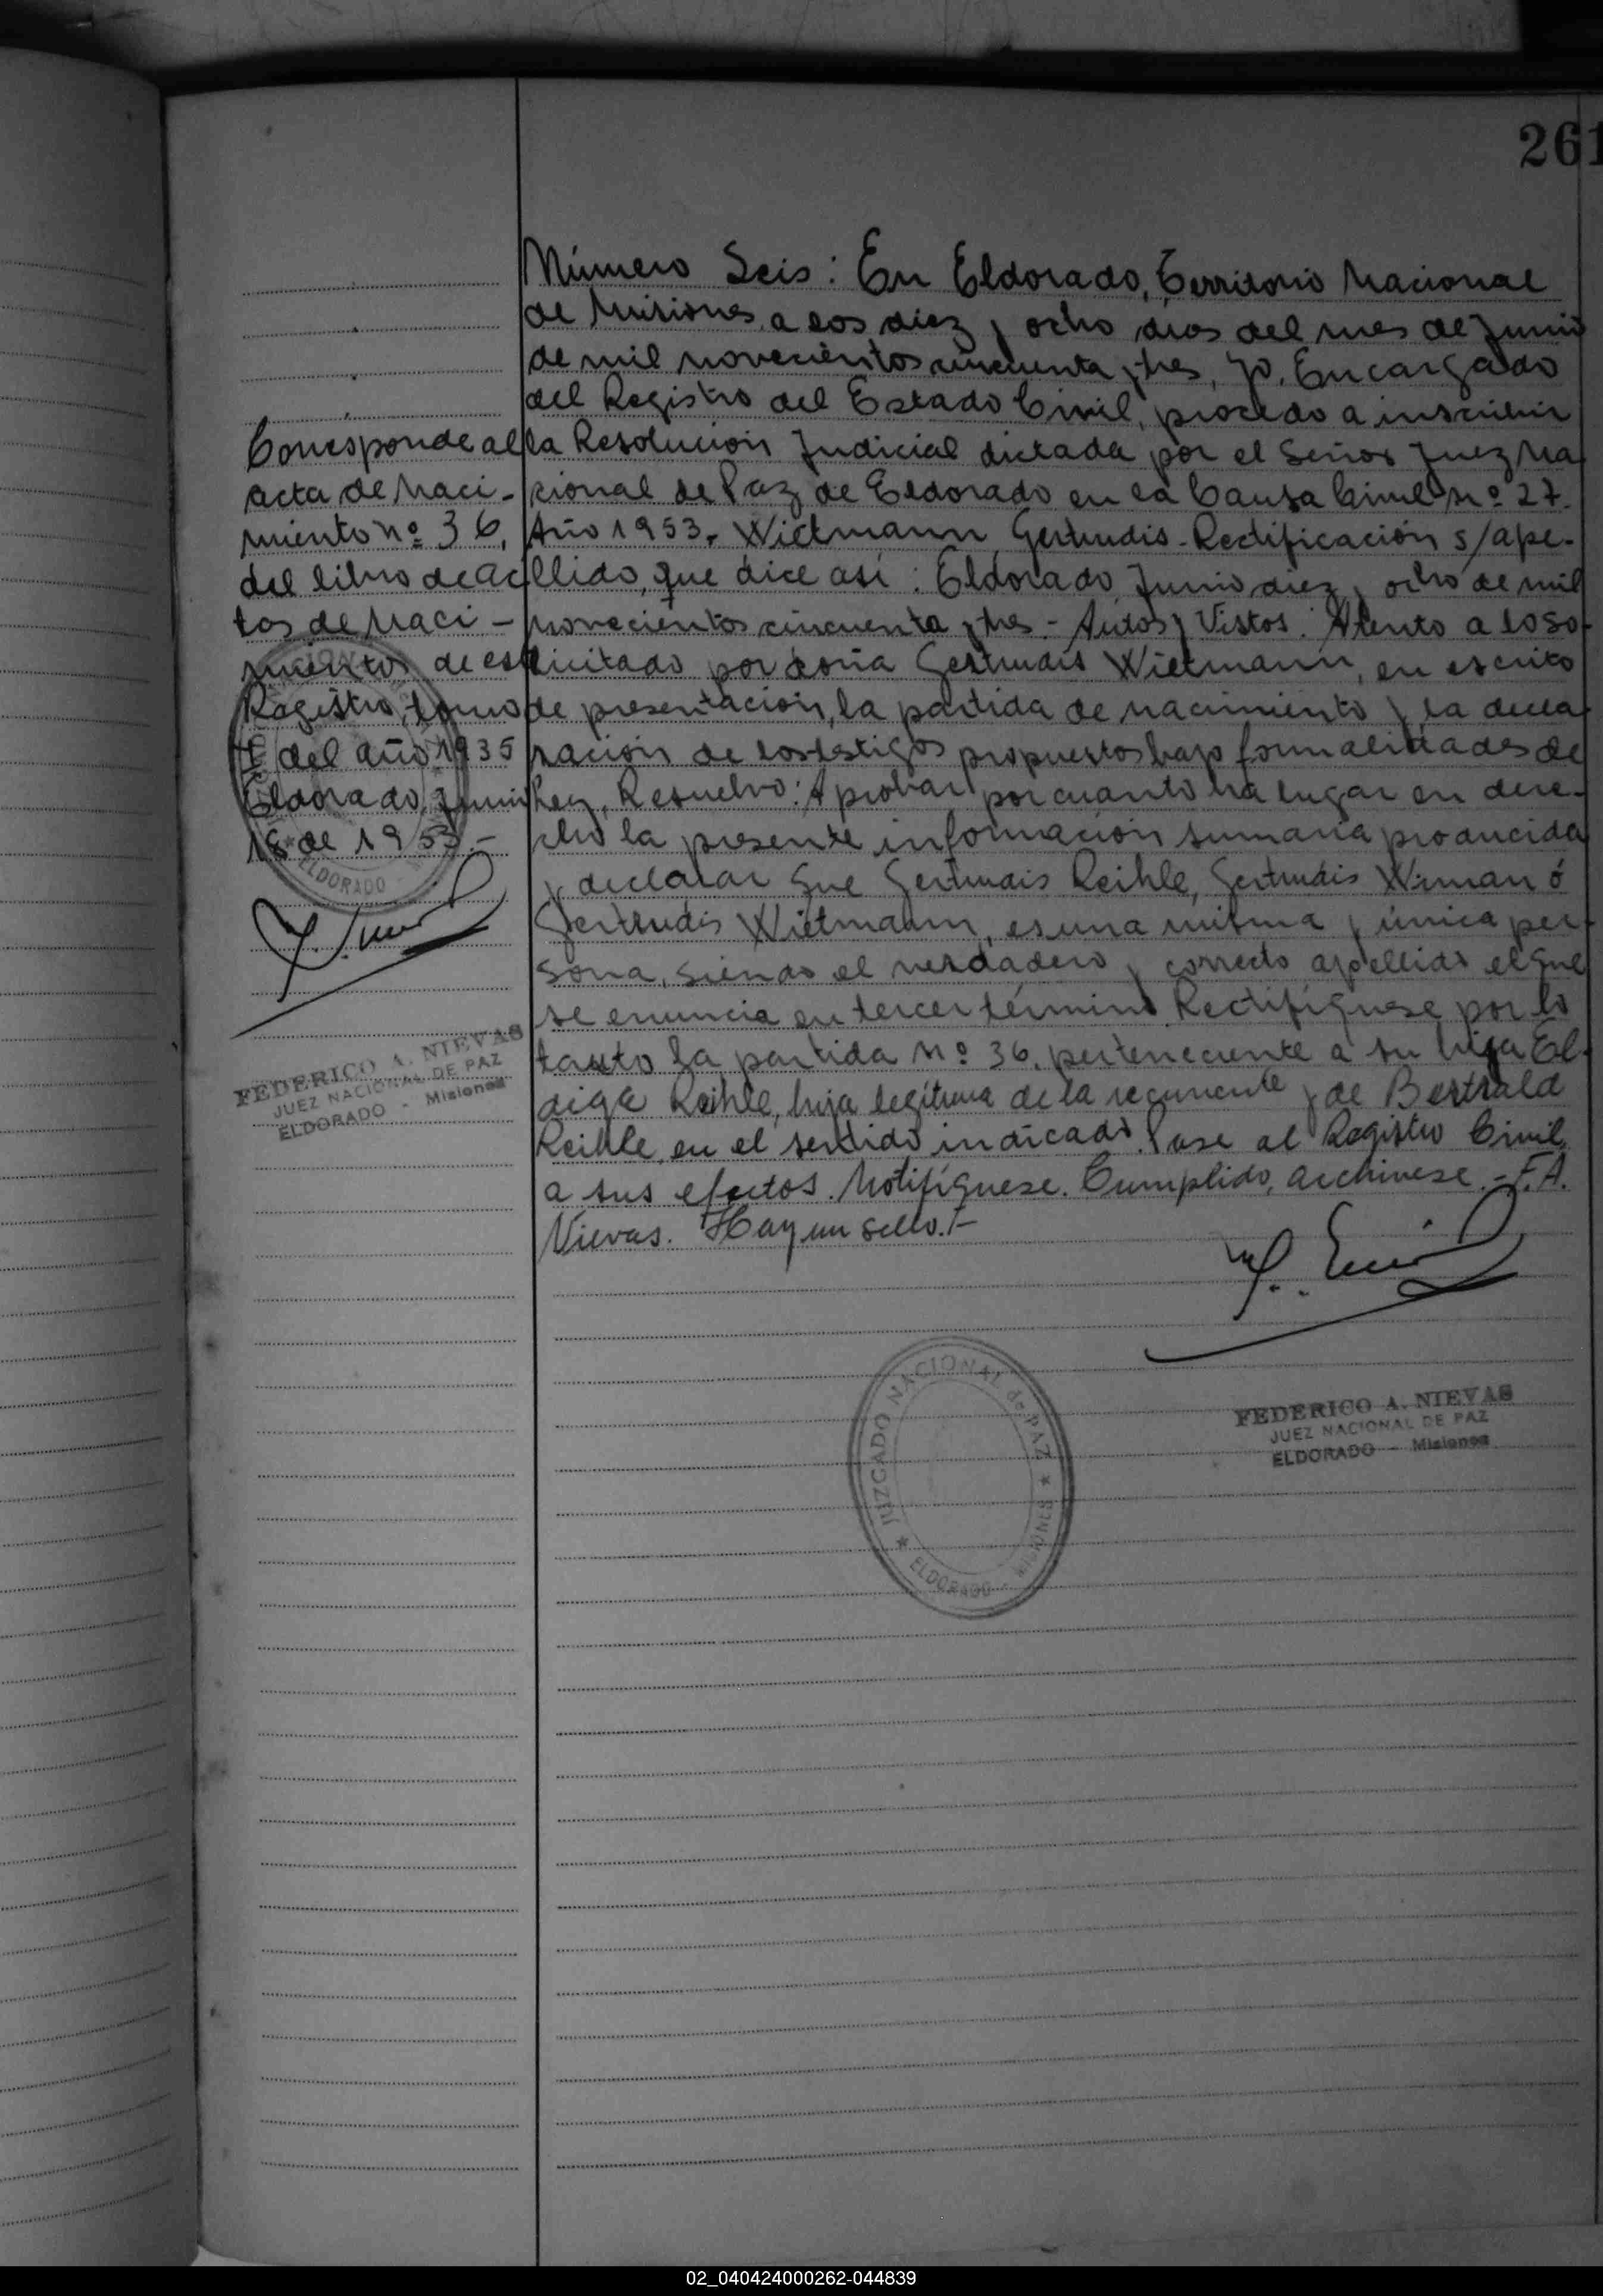 261
Número Seis: En Eldorado, Territorio Nacional
de Misiones, a los diez y ocho dias del mes de Junio
de mil novecientos cincuenta y tres, Yo, Encargado
del Registro del Estado Civil, procedo a inscribir
la Resolución Judicial dictada por el Señor Juez Na
cional de Paz de Eldorado en la Causa Civil Nº 27.
Año 1953. Wietmann Gertrudis - Rectificación s/ape-
llido, que dice así: Eldorado, Junio diez y ocho de mil
novecientos cincuenta y tres.- Autos y Vistos: Atento a lo so-
licitado por doña Gertrudis Wietmann, en escrito
de presentación, la partida de nacimiento y la decla
ración de los testigos propuestos bajo formalidades de
Ley, Resuelvo: Aprobar por cuanto ha lugar en dere-
cho la presente información sumaria producida
y declarar que Gertrudis Reihle, Gertrudis Wiman ó
Gertrudis Wietmann, es una misma y única per-
sona, siendo el verdadero y correcto apellido el que
se enuncia en tercer término. Rectifíquese por lo
tanto la partida Nº 36, perteneciente a su hija El-
Reihle, hija legítima de la recurrente y de Bertrald
Reihle, en el sentido indicado. Pase al Registro Civil,
a sus efectos. Notifíquese. Cumplido, archivese.- F.A.
Nievas. Hay un sello.-
Corresponde al
acta de Naci-
miento nº 36,
del libro de ac
tas de Naci-
mientos de es
Registro, tomo
del año 1935
Eldorado, Junio
18 de 1953.-
ELDORADO
FEDERICO A. NIEVAS
JUEZ NACIONAL DE PAZ
ELDORADO - Misiones
JUZGADO NACIONAL de PAZ
ELDORADO - MISIONES
FEDERICO A. NIEVAS
JUEZ NACIONAL DE PAZ
ELDORADO - Misiones
02_040424000262-044839